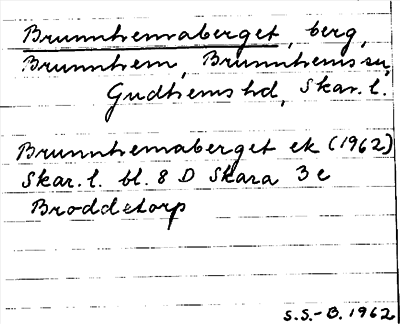 Brunnhemaberget, berg,
Brunnhem, Brunnhems sn,
Gudhems hd, Skar. l.
Brunnhemaberget ek (1962)
Skar. l. bl. 8 D Skara 3 e
Broddetorp
S.S.-B. 1962